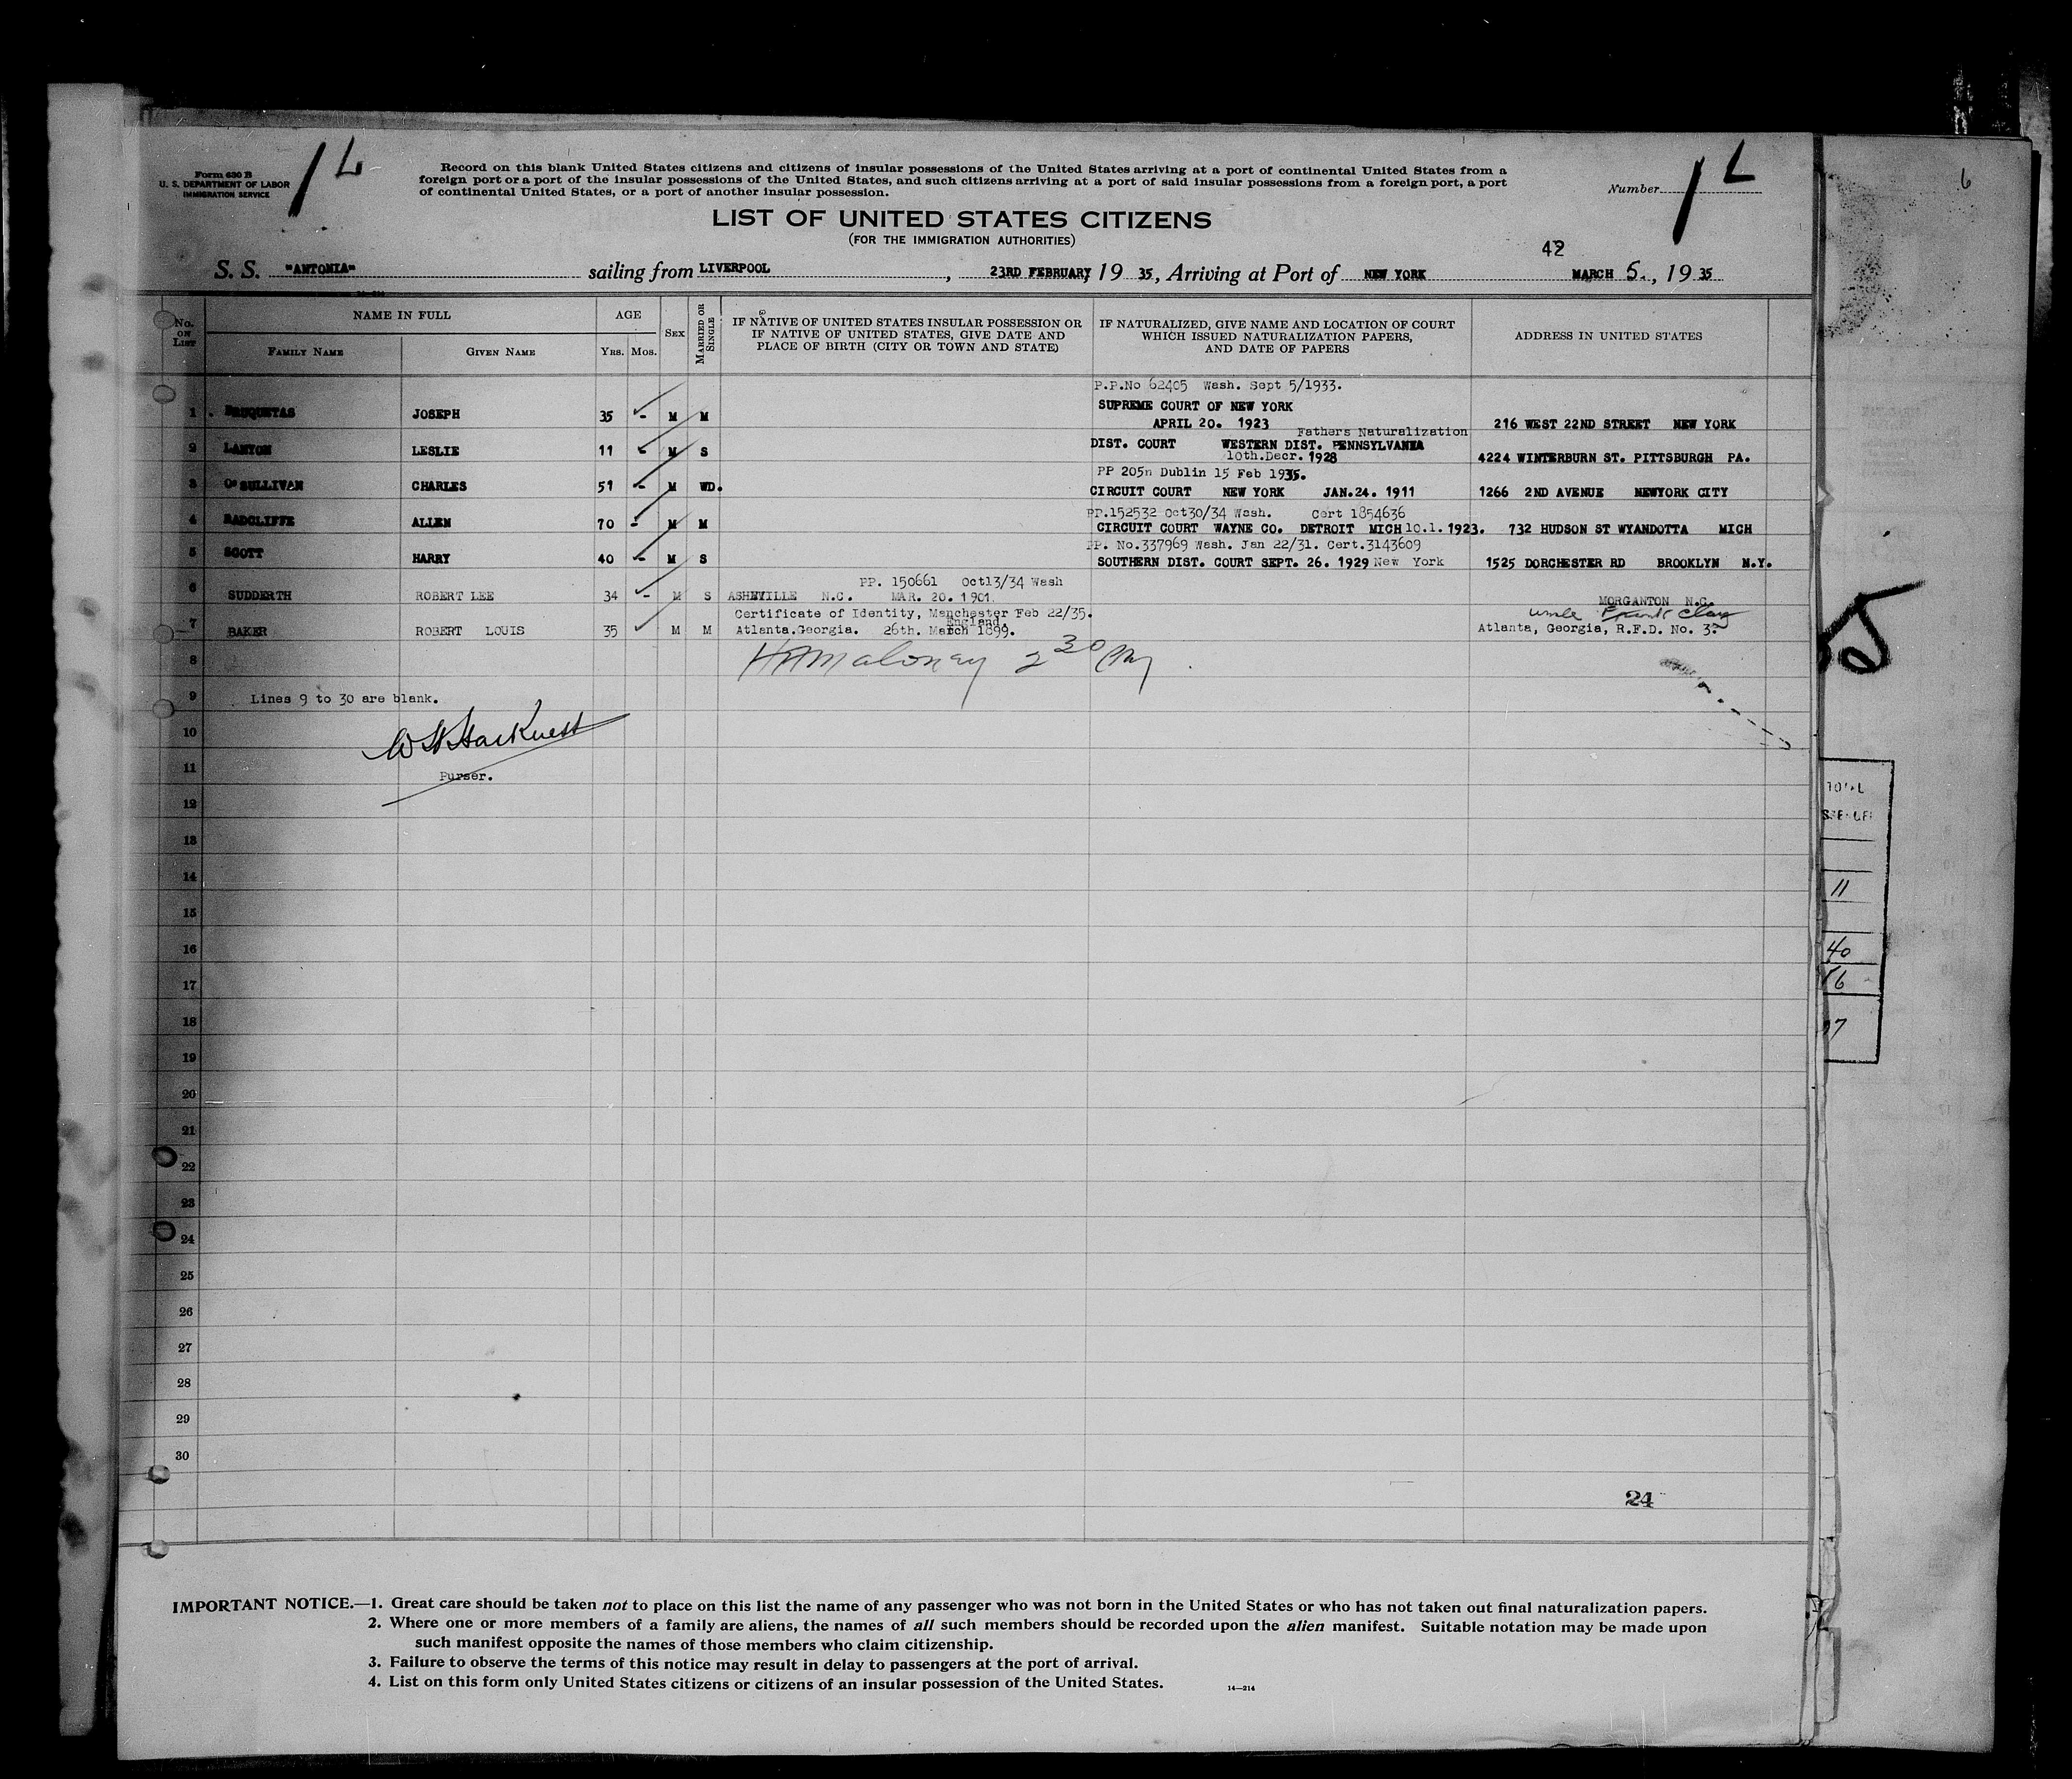 1 L
Form 630 B
U. S. DEPARTMENT OF LABOR
IMMIGRATION SERVICE
Record on this blank United States citizens and citizens of insular possessions of the United States arriving at a port of continental United States from a
foreign port or a port of the insular possessions of the United States, and such citizens arriving at a port of said insular possessions from a foreign port, a port
of continental United States, or a port of another insular possession.
Number 1 L
6
LIST OF UNITED STATES CITIZENS
(FOR THE IMMIGRATION AUTHORITIES)
42
S. S. "ANTONIA" sailing from LIVERPOOL, 23RD FEBRUARY, 19 35, Arriving at Port of NEW YORK MARCH 5., 19 35
No. ON LIST
NAME IN FULL
FAMILY NAME
GIVEN NAME
AGE
YRS. MOS.
SEX
MARRIED OR SINGLE
IF NATIVE OF UNITED STATES INSULAR POSSESSION OR
IF NATIVE OF UNITED STATES, GIVE DATE AND
PLACE OF BIRTH (CITY OR TOWN AND STATE)
IF NATURALIZED, GIVE NAME AND LOCATION OF COURT
WHICH ISSUED NATURALIZATION PAPERS,
AND DATE OF PAPERS
ADDRESS IN UNITED STATES
P.P.No 62405 Wash. Sept 5/1933.
1 BRUQUETAS JOSEPH 35 - M M SUPREME COURT OF NEW YORK
APRIL 20. 1923 216 WEST 22ND STREET NEW YORK
Fathers Naturalization
2 LANYON LESLIE 11 - M S DIST. COURT WESTERN DIST. PENNSYLVANIA
10th.Decr. 1928 4224 WINTERBURN ST. PITTSBURGH PA.
PP 205n Dublin 15 Feb 1935.
3 O'SULLIVAN CHARLES 51 - M WD. CIRCUIT COURT NEW YORK JAN.24. 1911 1266 2ND AVENUE NEWYORK CITY
PP.152532 Oct30/34 Wash. Cert 1854636
4 RADCLIFFE ALLEN 70 - M M CIRCUIT COURT WAYNE CO. DETROIT MICH 10.1. 1923. 732 HUDSON ST WYANDOTTA MICH
PP. No.337969 Wash. Jan 22/31. Cert.3143609
5 SCOTT HARRY 40 - M S SOUTHERN DIST. COURT SEPT. 26. 1929 New York 1525 DORCHESTER RD BROOKLYN N.Y.
PP. 150661 Oct13/34 Wash
6 SUDDERTH ROBERT LEE 34 - M S ASHEVILLE N.C. MAR. 20. 1901. MORGANTON N.C.
Certificate of Identity, Manchester Feb 22/35.
England.
uncle Frank Clay
7 BAKER ROBERT LOUIS 35 M M Atlanta.Georgia. 26th. March 1899. Atlanta, Georgia, R.F.D. No. 3.
8 H Maloney 2 30 PM
9 Lines 9 to 30 are blank.
10 W H Harkness
11 Purser.
12
13
14
15
16
17
18
19
20
21
22
23
24
25
26
27
28
29
30
24
11
40
IMPORTANT NOTICE.—1. Great care should be taken not to place on this list the name of any passenger who was not born in the United States or who has not taken out final naturalization papers.
2. Where one or more members of a family are aliens, the names of all such members should be recorded upon the alien manifest. Suitable notation may be made upon
such manifest opposite the names of those members who claim citizenship.
3. Failure to observe the terms of this notice may result in delay to passengers at the port of arrival.
4. List on this form only United States citizens or citizens of an insular possession of the United States.
14—214